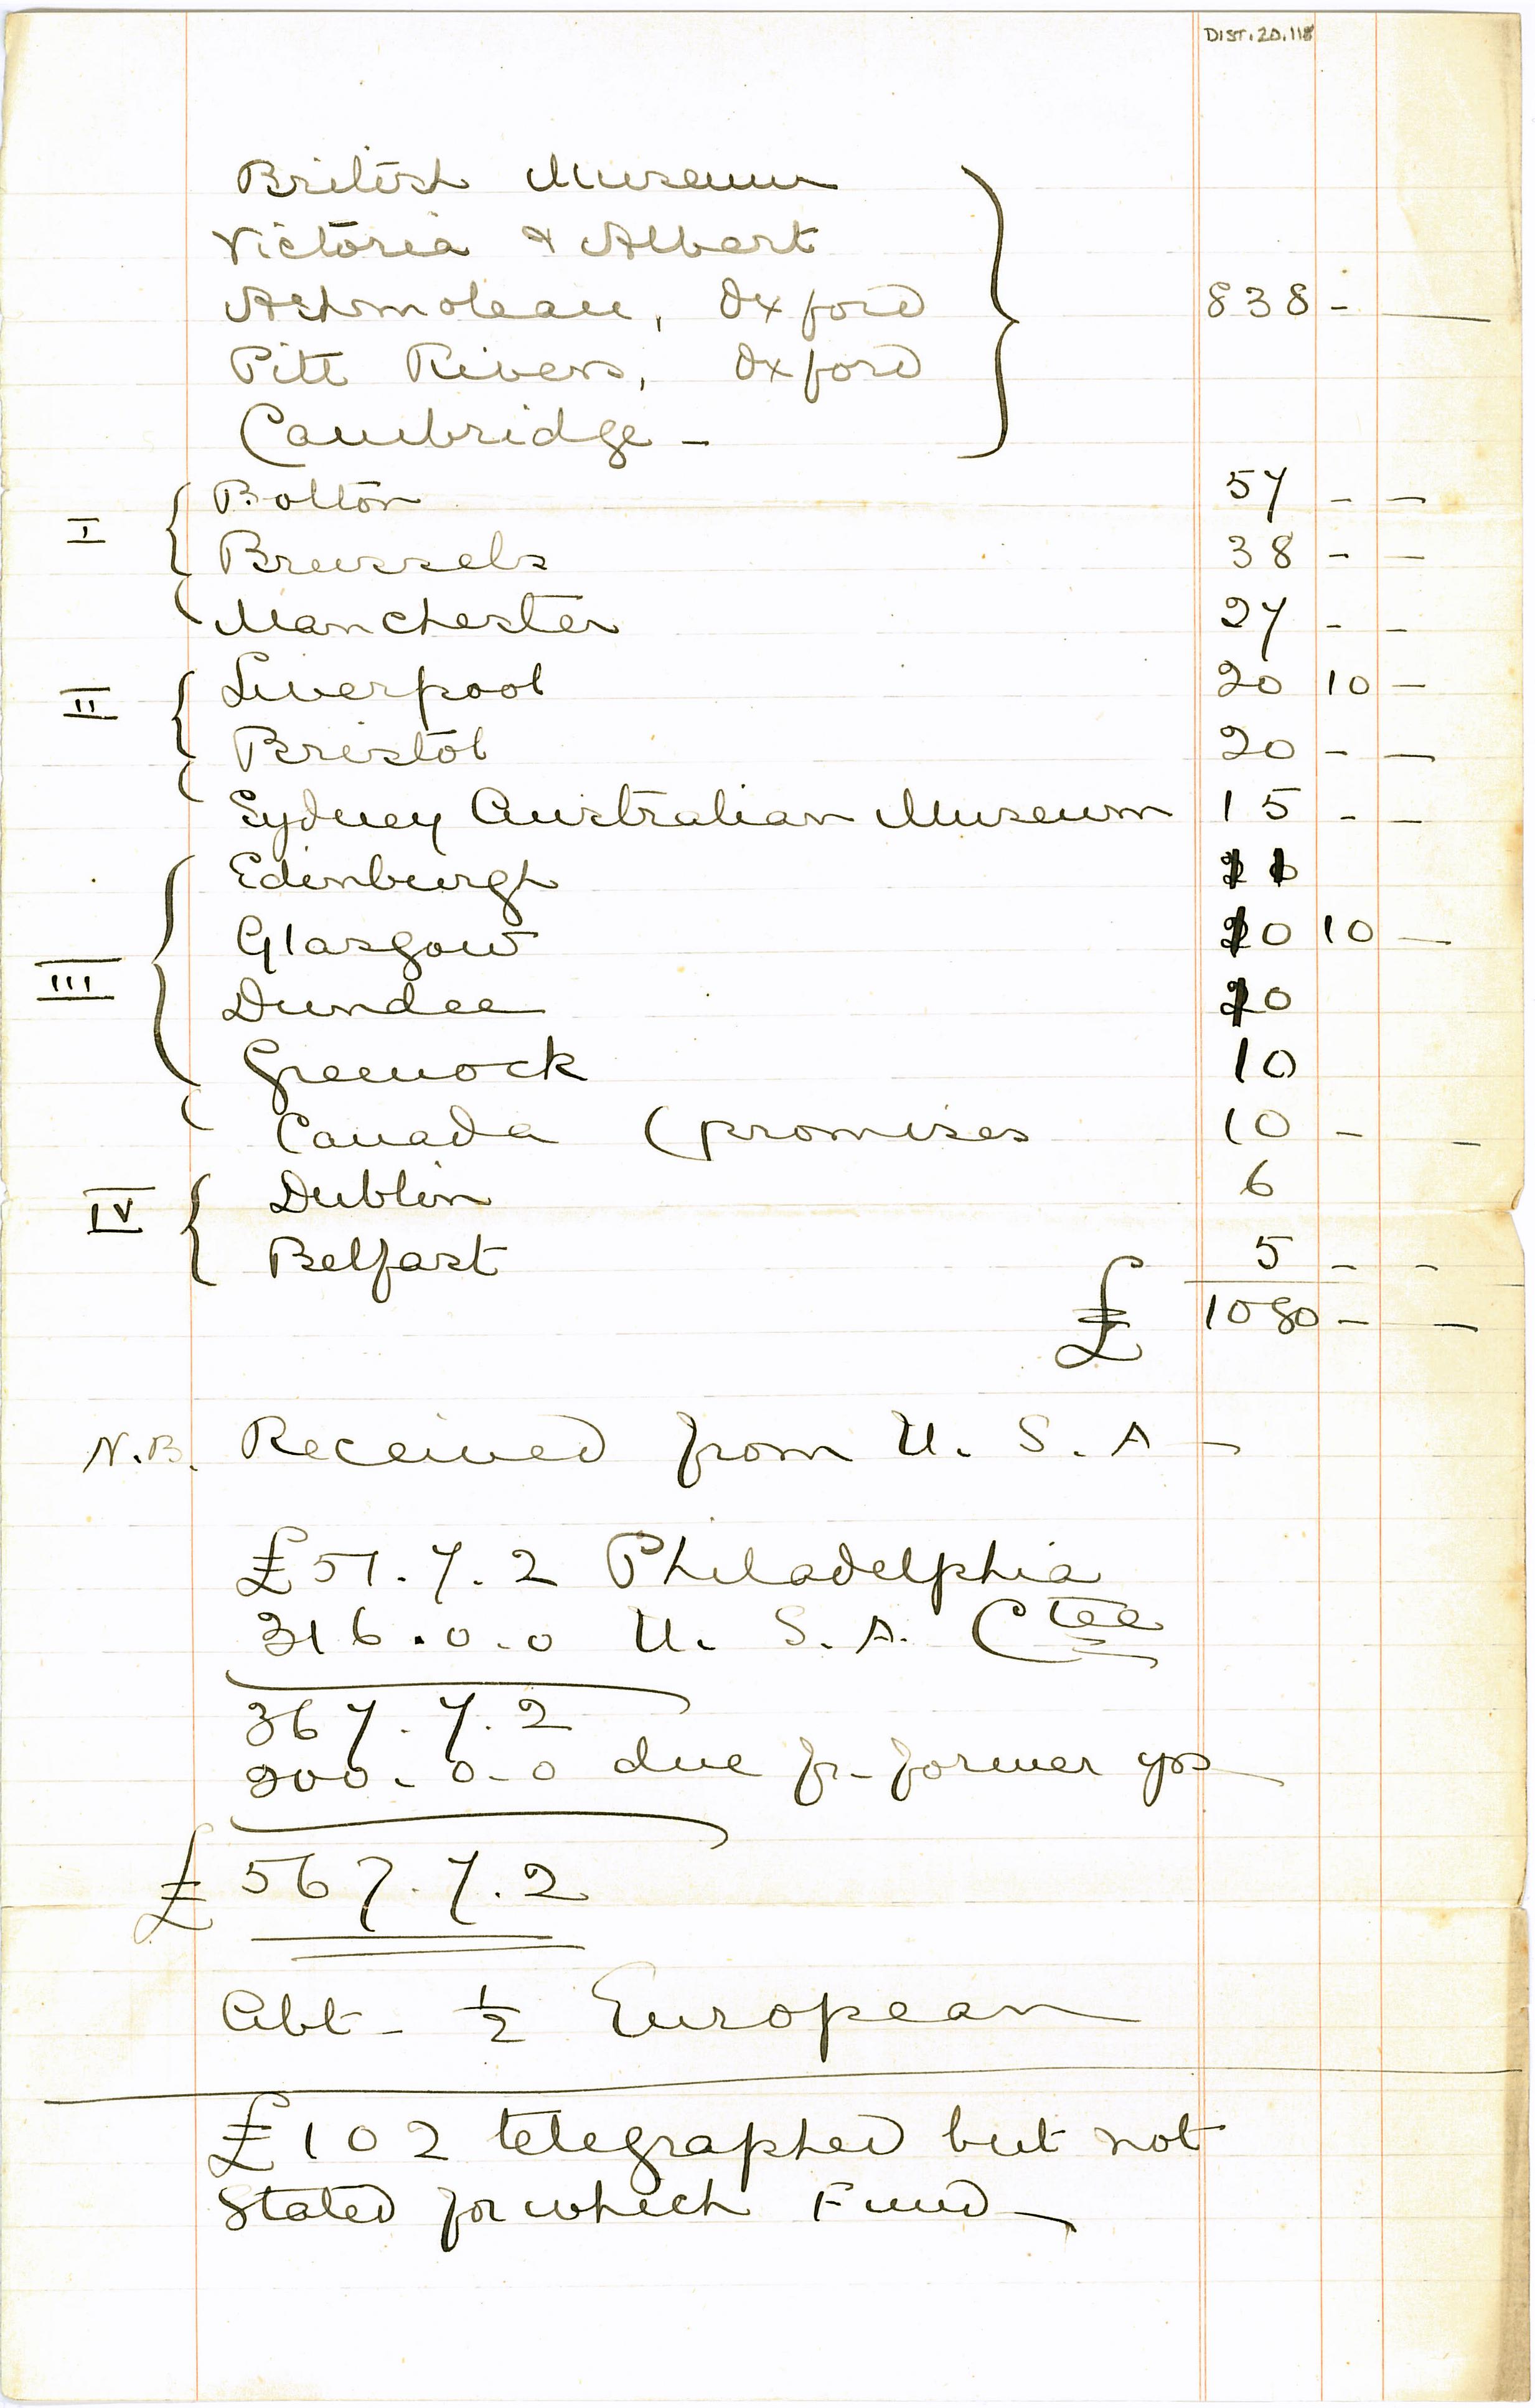 DIST.20.11
British Museum
Victoria & Albert
Ashmolean, Oxford 838 - -
Pitt Rivers, Oxford
Cambridge -
Bolton 57 - -
I
Brussels 38 - -
Manchester 27 - -
Liverpool 20 10 -
II
Bristol 20 - -
Sydney Australian Museum 15 - -
Edinburgh
Glasgow 10 10 -
III
Dundee 10
Greenock 10
Canada (promises 10 - -
Dublin 6
IV
Belfast 5 - -
£ 1080 - -
N.B. Received from U. S. A -
£51.7.2 Philadelphia
316.0.0 U. S. A. Ctee
367.7.2
200-0-0 due fr- former yrs
£ 567.7.2
Abt- 1/2 European
£102 telegraphed but not
stated for which Fund